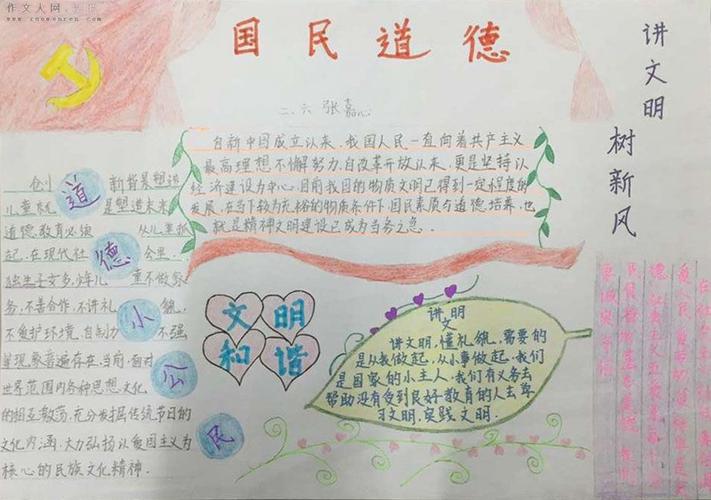 作文人网
国民道德
讲文明
树新风
二、六 张嘉心
自新中国成立以来,我国人民一直向着共产主义
最高理想不懈努力,自改革开放以来,更是坚持以
经济建设为中心,目前我国的物质文明已得到一定程度的
发展,在当下较为充裕的物质条件下,国民素质与道德培养,也
就是精神文明建设已成为当务之急.
道德小公民
创小 新背景塑造
儿童就 是塑造未来
道德教育必须 从儿童抓
起.在现代社 会里,
独生子女多,
务,不善合作,不讲礼 貌,
不爱护环境,自制力 不强
等现象普遍存在.当前,面对
世界范围内各种思想文化
的相互激荡,充分发掘传统节日的
文化内涵,大力弘扬以爱国主义为
核心的民族文化精神.
文明
和谐
讲文明
讲文明,懂礼貌,需要的
是从我做起,从小事做起.我们
是国家的小主人,我们有义务去
帮助没有受到良好教育的人去学
习文明.实践文明.